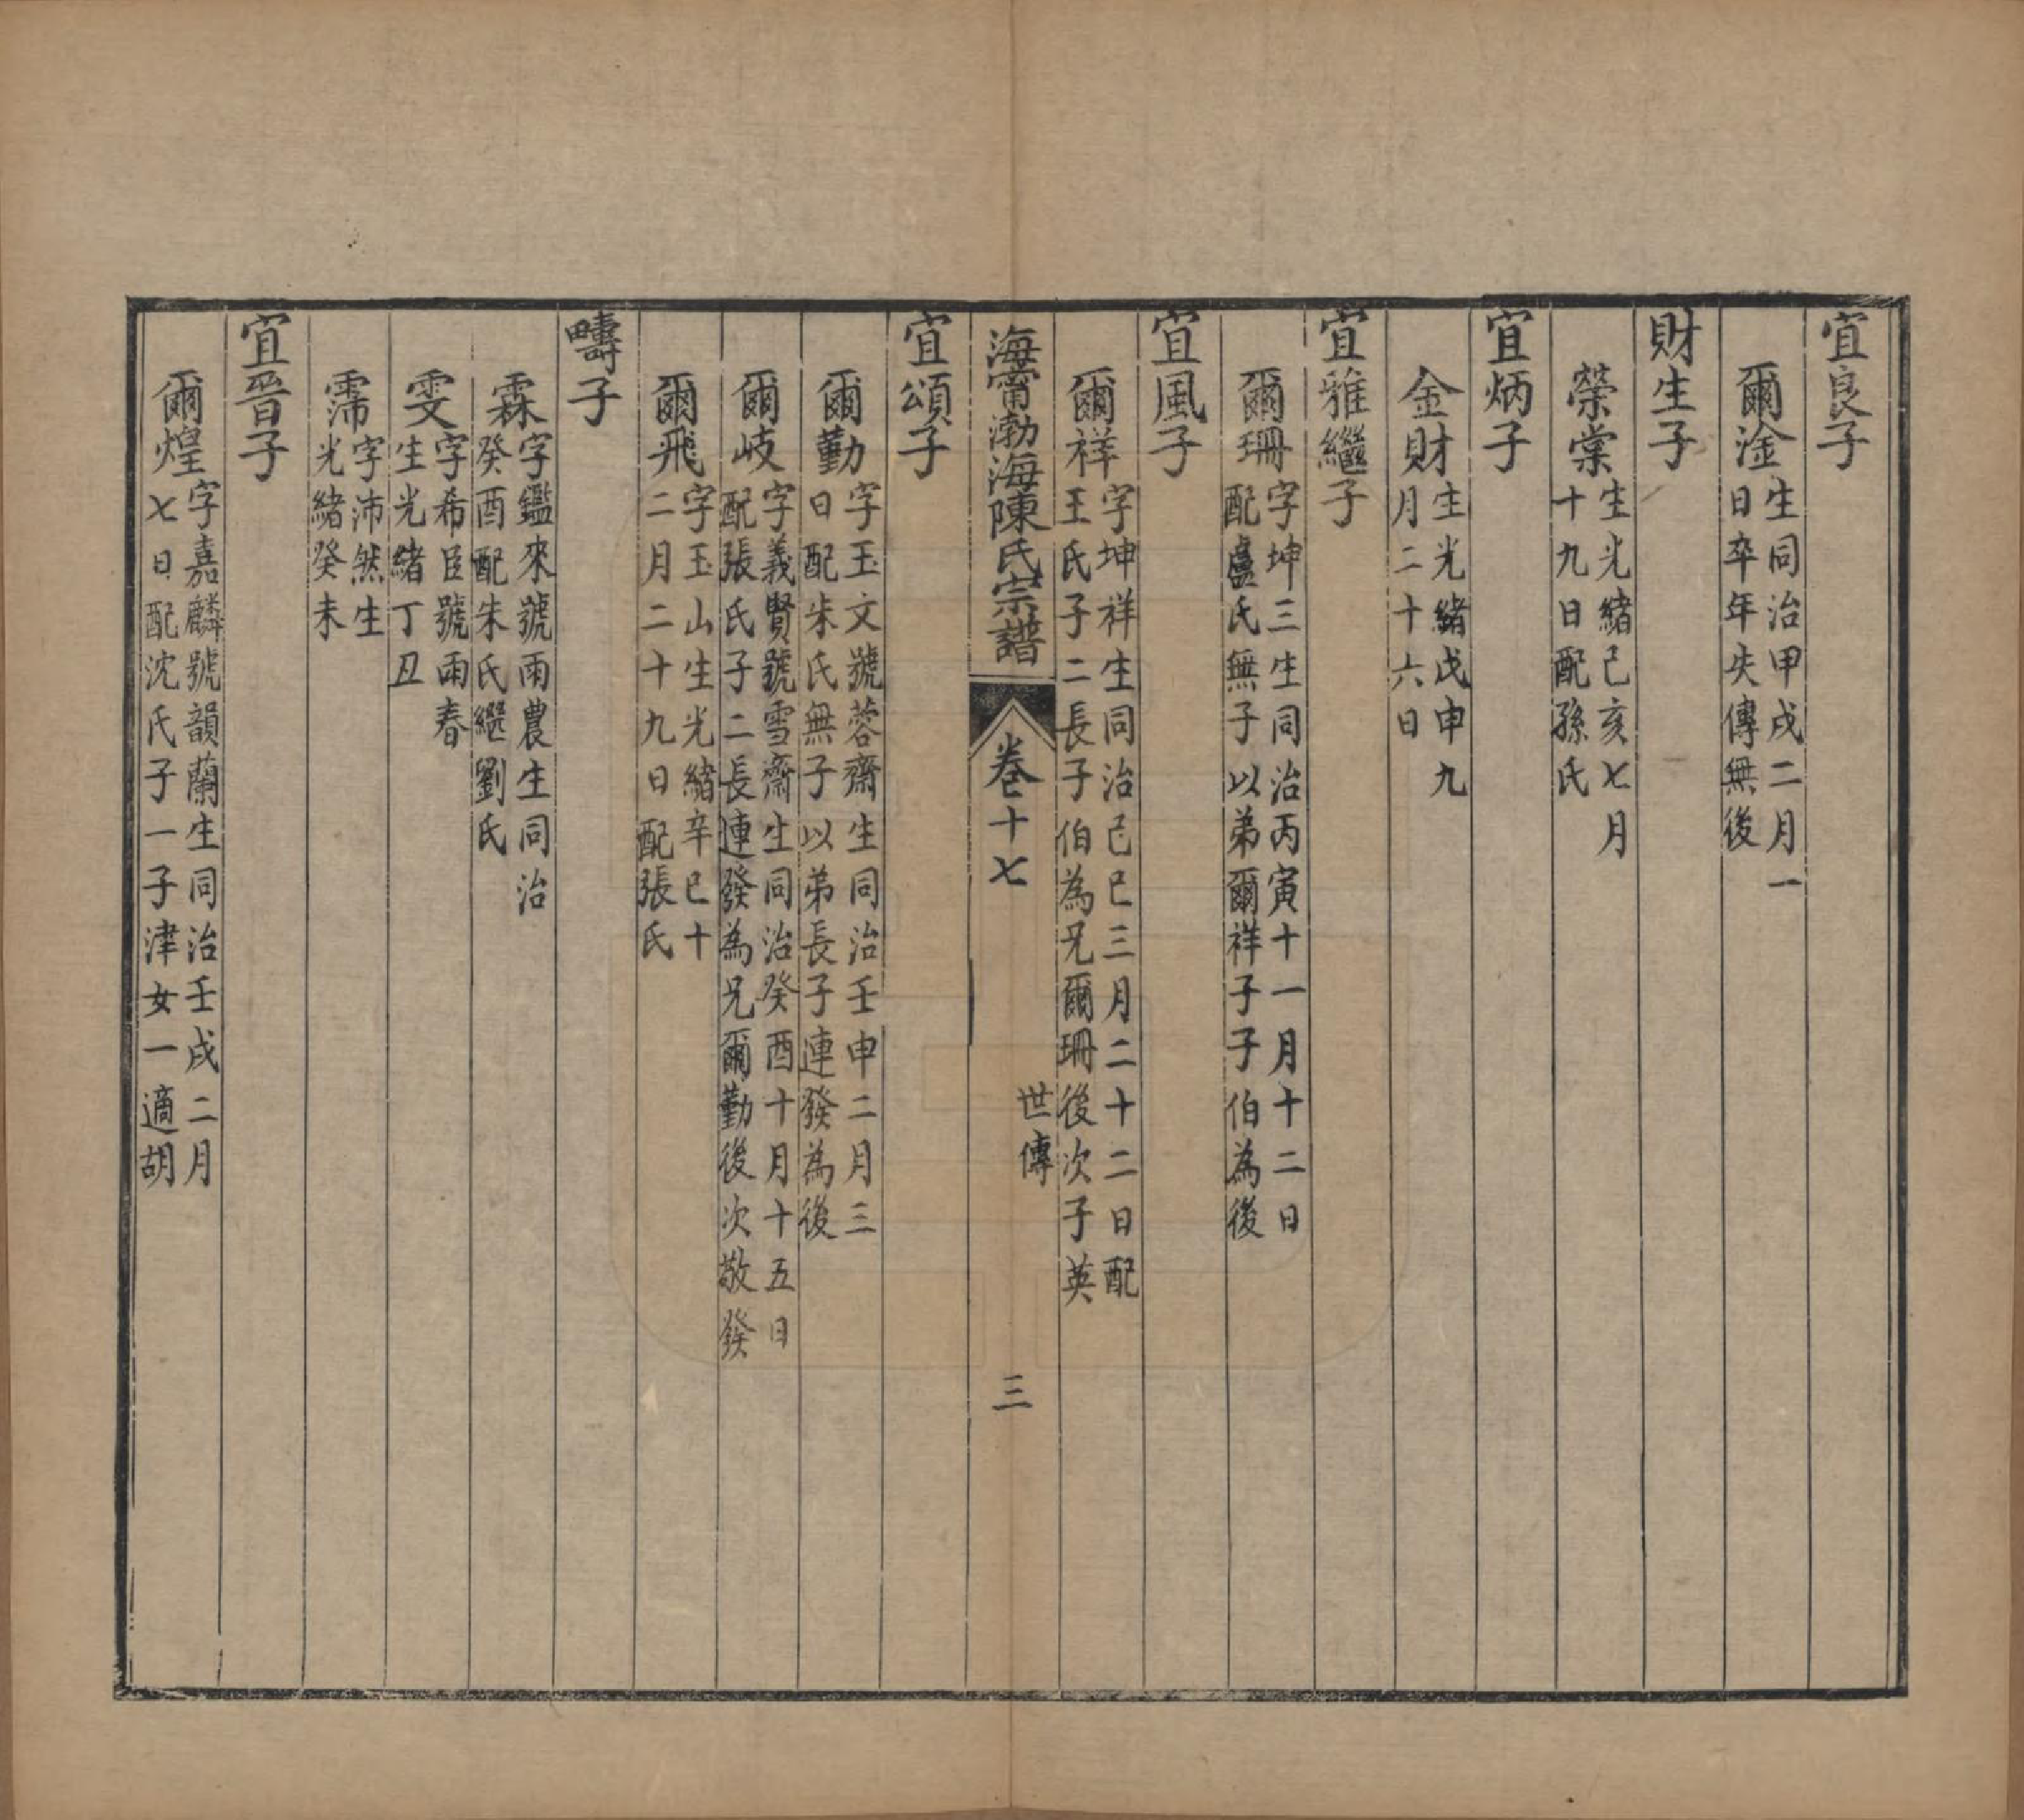 宜良子
爾淦生同治甲戌二月一
日卒年失傳無後
財生子
榮棠生光緒己亥七月
十九日配孫氏
宜炳子
金財生光緒戊申九
月二十六日
宜雅繼子
爾珊字坤三生同治丙寅十一月十二日
配盧氏無子以弟爾祥子子伯為後
宜風子
爾祥字坤祥生同治己巳三月二十二日配
王氏子二長子伯為兄爾珊後次子英
海甯渤海陳氏宗譜
卷十七
世傳
三
宜頌子
爾勤字玉文號蓉齋生同治壬申二月三
日配朱氏無子以弟長子連發為後
爾岐字義賢號雪齋生同治癸酉十月十五日
配張氏子二長連發為兄爾勤後次敬發
爾飛字玉山生光緒辛巳十
二月二十九日配張氏
疇子
霖字鑑來號雨農生同治
癸酉配朱氏繼劉氏
雯字希臣號雨春
生光緒丁丑
霈字沛然生
光緒癸未
宜晉子
爾煌字嘉麟號韻蘭生同治壬戌二月
七日配沈氏子一子津女一適胡